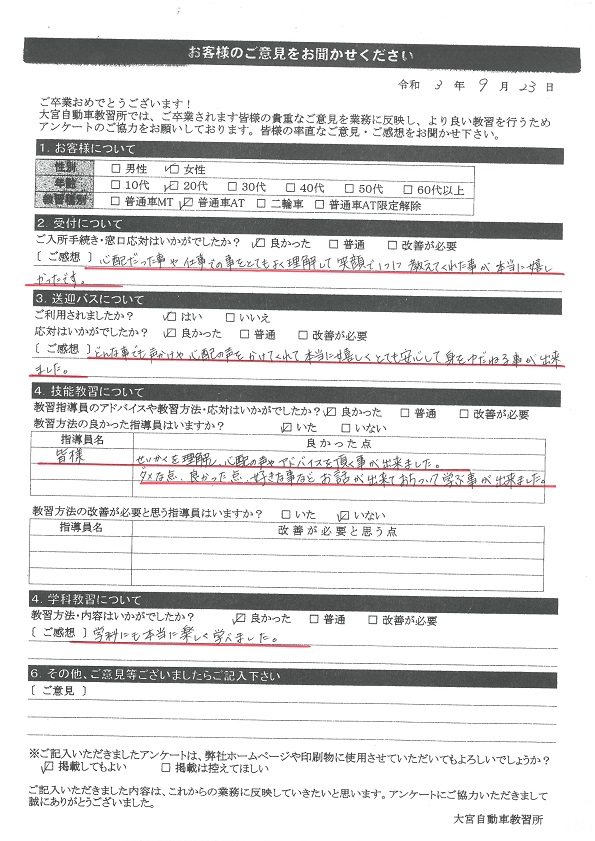 お客様のご意見をお聞かせください
令和 3 年 9 月 23 日
ご卒業おめでとうございます！
大宮自動車教習所では、ご卒業されます皆様の貴重なご意見を業務に反映し、より良い教習を行うため
アンケートのご協力をお願いしております。皆様の率直なご意見・ご感想をお聞かせ下さい。
1. お客様について
性別 □ 男性 ☑ 女性
年齢 □ 10代 ☑ 20代 □ 30代 □ 40代 □ 50代 □ 60代以上
教習種別 □ 普通車MT ☑ 普通車AT □ 二輪車 □ 普通車AT限定解除
2. 受付について
ご入所手続き・窓口応対はいかがでしたか？ ☑ 良かった □ 普通 □ 改善が必要
［ ご感想 ］ 心配だった事や仕事での事をとてもよく理解して笑顔で 教えてくれた事が本当に嬉し
かったです。
3. 送迎バスについて
ご利用されましたか？ ☑ はい □ いいえ
応対はいかがでしたか？ ☑ 良かった □ 普通 □ 改善が必要
［ ご感想 ］ どんな事でも声かけや心配の声をかけてくれて本当に嬉しくとても安心して身をゆだねる事が出来
ました。
4. 技能教習について
教習指導員のアドバイスや教習方法・応対はいかがでしたか？ ☑ 良かった □ 普通 □ 改善が必要
教習方法の良かった指導員はいますか？ ☑ いた □ いない
指導員名 良かった点
皆様 せいかくを理解し、心配の声やアドバイスを頂く事が出来ました。
ダメな点、良かった点、好きな事など お話が出来ておちついて学ぶ事が出来ました。
教習方法の改善が必要と思う指導員はいますか？ □ いた ☑ いない
指導員名 改善が必要と思う点
4. 学科教習について
教習方法・内容はいかがでしたか？ ☑ 良かった □ 普通 □ 改善が必要
［ ご感想 ］ 学科にも本当に楽しく学べました。
6. その他、ご意見等ございましたらご記入下さい
［ ご意見 ］
※ご記入いただきましたアンケートは、弊社ホームページや印刷物に使用させていただいてもよろしいでしょうか？
☑ 掲載してもよい □ 掲載は控えてほしい
ご記入いただきました内容は、これからの業務に反映していきたいと思います。アンケートにご協力いただきまして
誠にありがとうございました。
大宮自動車教習所